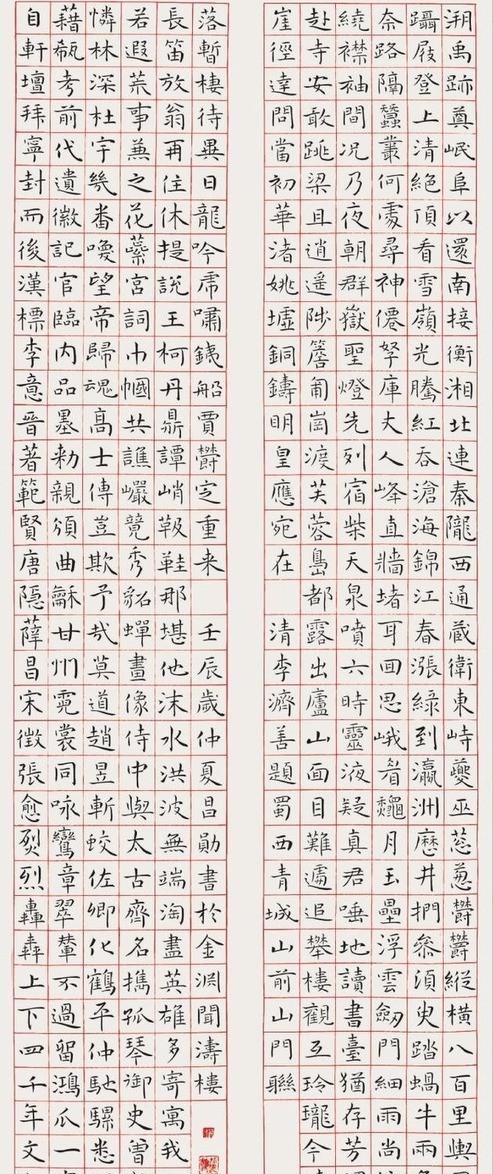 溯禹跡奠岷阜以還南接衡湘北連秦隴西通藏衛東峙夔巫葱蔥鬱鬱縱橫八百里輿
躡屐登上清絕頂看雪嶺光騰紅吞滄海錦江春漲綠到瀛洲歷井捫參須臾踏蝸牛兩
奈路隔蠶叢何處尋神僊帑庫丈人峰直牆堵耳回思峨眉龝月玉壘浮雲劍門細雨尚
繞襟袖間況乃夜朝群嶽聖燈先列宿柴天泉噴六時靈液疑真君唾地讀書臺猶存芳
赴寺安敢跳梁且逍遙陟簷葡崗渡芙蓉島都露出廬山面目難遽追攀樓觀互玲瓏今
崖徑達問當初華渚姚墟銅鑄明皇應宛在 清李濟善題蜀西青城山前山門聯
自軒壇拜寧封而後漢標李意晉著範賢唐隱薛昌宋徵張愈烈烈轟轟上下四千年文
藉瓻考前代遺徽記官臨內品墨敕親頒曲龢甘州霓裳同咏鸞章翠輦不過留鴻爪一
憐林深杜宇幾番喚望帝歸魂高士傳豈欺予哉莫道趙昱斬蛟佐卿化鶴平仲馳騾悉
若遐荒事兼之花蘂宮詞巾幗共譙巖競秀貂蟬畫像侍中與太古齊名攜孤琴御史曾
長笛放翁再住休提說王柯丹鼎譚峭靸鞋那堪他沫水洪波無端淘盡英雄多寄寓我
落暫棲待異日龍吟虎嘯鐵船賈鬱定重来 壬辰歲仲夏昌勛書於金淵聞濤樓